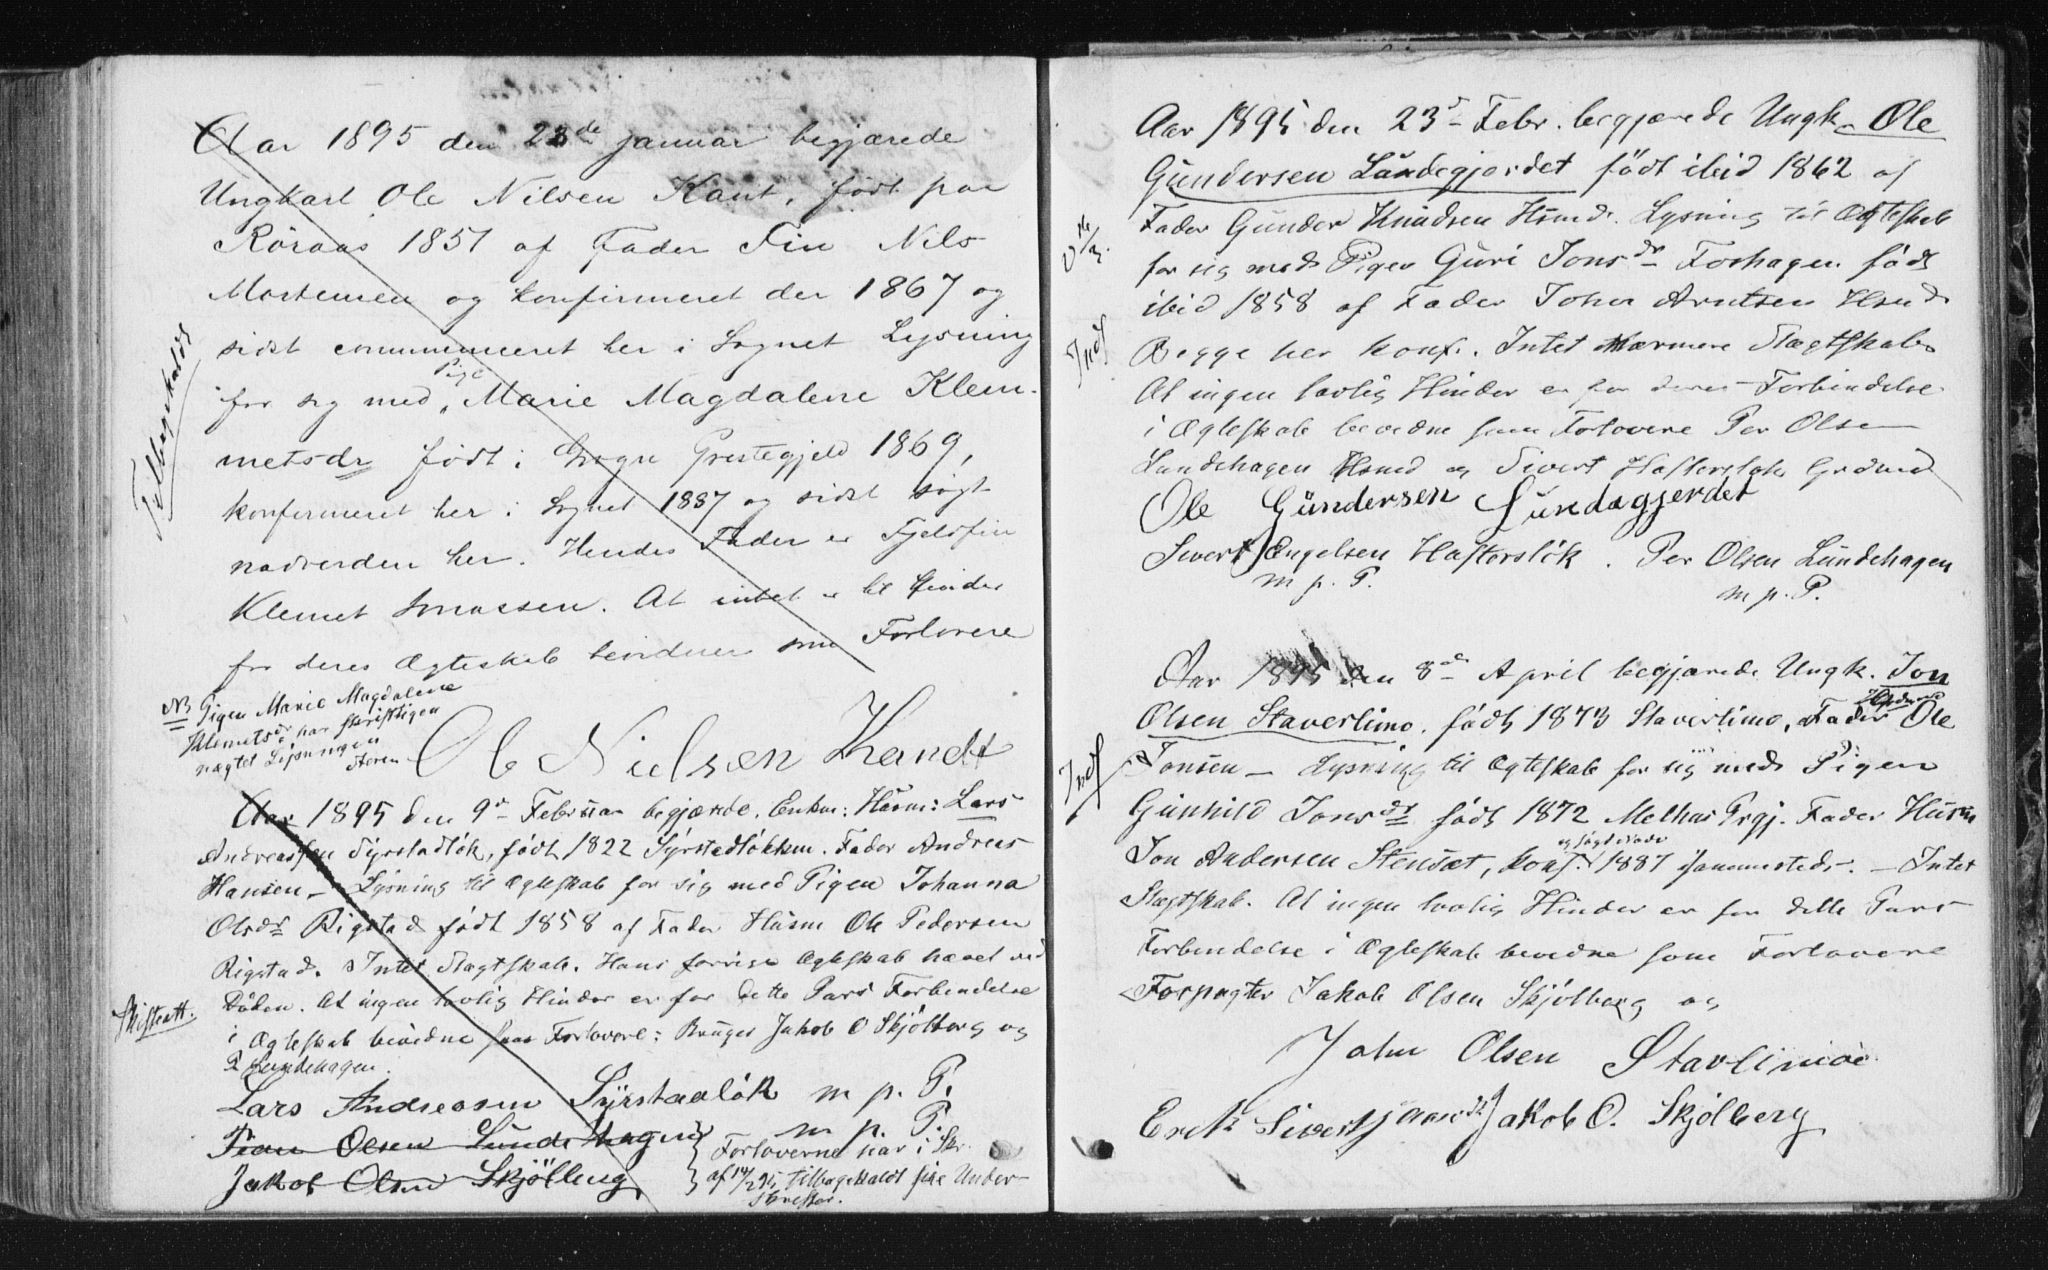 Aar 1895 den 23de januar begjærede
Ungkarl Ole Nilsen Kant, født paa
Röraas 1851 af Fader Fin Nils
Mortensen og konfirmeret der 1867 og
sidst communiceret her i Sognet Lysning
for sig med Pige Marie Magdalene Klem-
metsdr født i Sogne Prestegjeld 1869,
konfirmeret her i Sognet 1887 og sidst søgt
nadverden her. Hendes Fader er Fjeldfin
Klemet Jonassen. At intet er til Hinder
for deres Ægteskab bevidner som Forlovere
Tilbagekaldt
NB Pigen Marie Magdalene
Klemetsdr har skriftligen
nægtet Lysningen
Støren
Ole Nielsen Kandt
Aar 1895 den 9de Februar begjærede Enkm: Husm: Lars
Andreassen Syrstadløk, født 1822 Syrstadløkken. Fader Andreas
Hansen – Lysning til Ægteskab for sig med Pigen Johanna
Olsdr Rigstad født 1858 af Fader Husm Ole Pedersen
Rigstad. Intet Slægtskab. Hans forrige Ægteskab hævet ved
Døden. At ingen lovlig Hinder er for dette Pars Forbindelse
i Ægteskab bevidne som Forlovere: Bruger Jakob O Skjölberg og
P Lundehagen.
Skifteatt.
Lars Andreasen Syrstadlök m p. P.
Olsen Lundehagen m p. P.
Jakob Olsen Skjölberg
Forloverne har i Skr.
af 14/2 95 tilbagekaldt sine Under-
skrifter.
Aar 1895 den 23de Febr. begjærede Ungk. Ole
Gundersen Lundegjerdet født ibid 1862 af
Fader Gunder Knudsen Hsmd. Lysning til Ægteskab
for sig med Pigen Guri Jonsdr Forhagen født
ibid 1858 af Fader John Arntsen Hsmd
Begge her konf. Intet nærmere Slægtskab
At ingen lovlig Hinder er for deres Forbindelse
i Ægteskab bevidne som Forlovere Per Olsen
Lundehagen Hsmd og Sivert Haftorslök Grdmd
Indf
Ole Gundersen Lundegjerdet
Sivert Engelsen Haftorslök. Per Olsen Lundehagen
m p. P. m p. P.
Aar 1895 den 8de April begjærede Ungk. Jon
Olsen Staverlimo. født 1873 Staverlimo, Fader Ole
Jonsen – Lysning til Ægteskab for sig med Pigen
Gunhild Jonsdr født 1872 Melhus Prgj. Fader Husm
Jon Andersen Stensæt, konf. 1887 sammesteds. – Intet
Slægtskab. At ingen lovlig Hinder er for dette Pars
Forbindelse i Ægteskab bevidne som Forlovere
Forpagter Jakob Olsen Skjölberg og
Indf
John Olsen Stavlimoe
Erik Sivertsjaardt Jakob O. Skjölberg